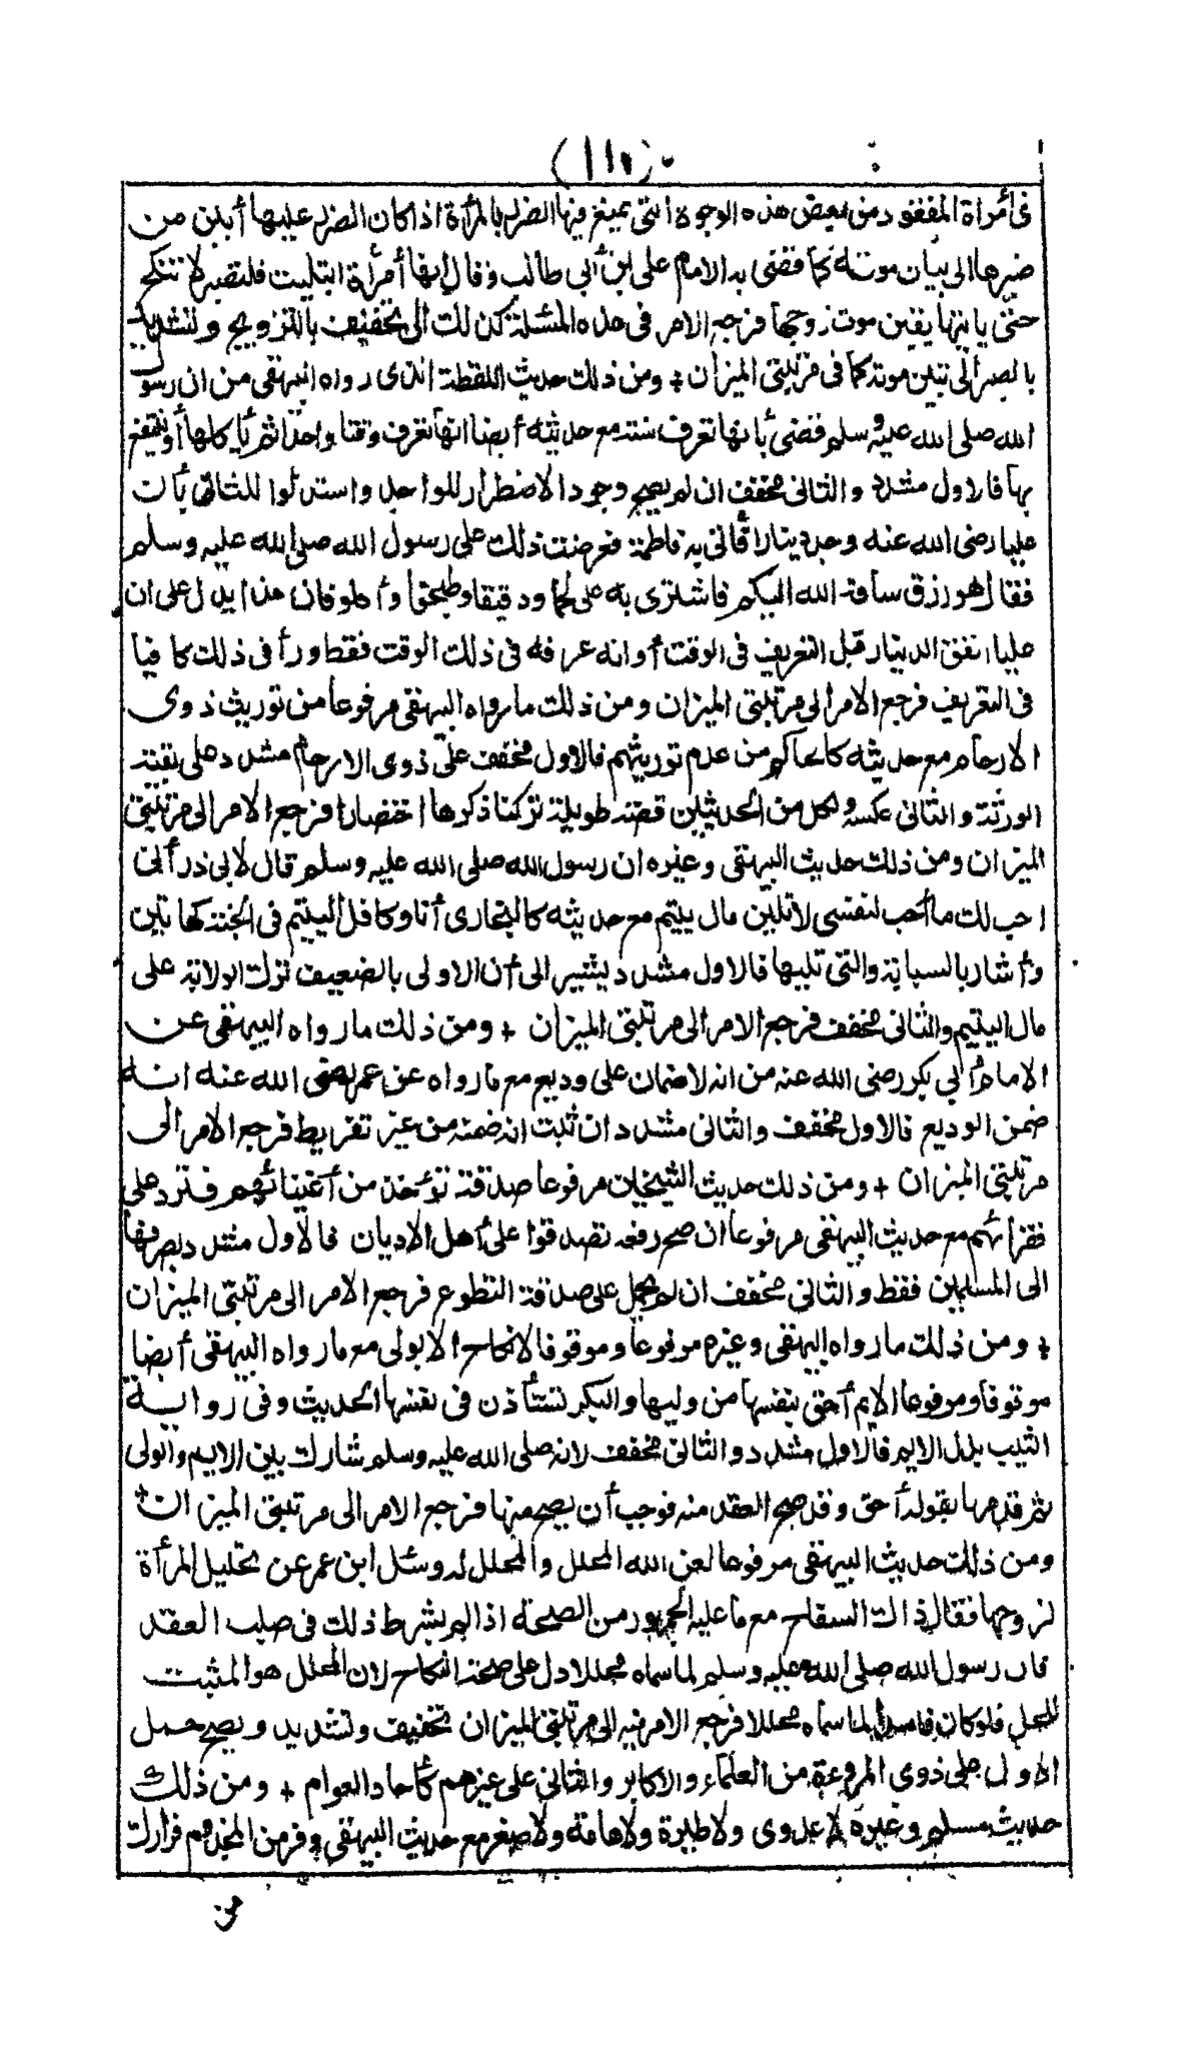 (١١٠)
فى امرأة المفقود من بعض هذه الوجوه التى يميز فيها الضرر بالمرأة اذا كان الضرر عليها أبلن من
ضررها الى بيان موته كما قضى به الامام على ابن أبى طالب وقال ايها أمرأة ابتليت فلتصبر لا تنكح
حتى يأتيها يقين موت زوجها فرجع الامر فى هذه المسئلة كذلك الى تخفيف بالتزويج وتشديد
بالصبر الى تبين موته كما فى مرتبتى الميزان + ومن ذلك حديث اللقطة الذى رواه البيهقى من ان رسول
الله صلى الله عليه وسلم قضى بأنها تعرف سنة مع حديثه أيضا انها تعرف وقتا واحدا ثم يأكلها أو ينتفع
بها فالاول مشدد والثانى مخفف ان لم يصح وجود الاضطرار للواجد واستدلوا للثانى بأن
عليا رضى الله عنه وجد دينارا فأتى به فاطمة فعرضت ذلك على رسول الله صلى الله عليه وسلم
فقال هو رزق ساقه الله اليكم فاشترى به على لحما ودقيقا وطبخوا وأكلوا فان هذا يدل على ان
عليا انفق الدينار قبل التعريف فى الوقت أو انه عرفه فى ذلك الوقت فقط ورأى ذلك كافيا
فى التعريف فرجع الامر الى مرتبتى الميزان ومن ذلك ما رواه البيهقى مرفوعا من توريث ذوى
الارحام مع حديثه كالحاكم من عدم توريثهم فالاول مخفف على ذوى الارحام مشدد على بقية
الورثة والثانى عكسه ولكل من الحديثين قصة طويلة تركنا ذكرها اختصارا فرجع الامر الى مرتبتى
الميزان ومن ذلك حديث البيهقى وغيره ان رسول الله صلى الله عليه وسلم قال لابى ذر أنى
احب لك ما أحب لنفسى لا تلين مال يتيم مع حديثه كالبخارى أنا وكافل اليتيم فى الجنة كهاتين
وأشار بالسبابة والتى تليها فالاول مشدد يشير الى أن الاولى بالضعيف ترك الولاية على
مال اليتيم والثانى مخفف فرجع الامر الى مرتبتى الميزان + ومن ذلك ما رواه البيهقى عن
الامام أبى بكر رضى الله عنه من انه لا ضمان على وديع مع ما رواه عن عمر رضى الله عنه انه
ضمن الوديع فالاول مخفف والثانى مشدد ان ثبت انه ضمنه من غير تفريط فرجع الامر الى
مرتبتى الميزان + ومن ذلك حديث الشيخان مرفوعا صدقة تؤخذ من أغنيائهم فترد على
فقرائهم مع حديث البيهقى مرفوعا ان صح رفعه تصدقوا على أهل الاديان فالاول مشدد بصرفها
الى المسلمين فقط والثانى مخفف ان لم يحمل على صدقة التطوع فرجع الامر الى مرتبتى الميزان
+ ومن ذلك ما رواه البيهقى وغيره مرفوعا وموقوفا لا نكاح الا بولى مع ما رواه البيهقى أيضا
موقوفا ومرفوعا الايم أحق بنفسها من وليها والبكر تستأذن فى نفسها الحديث وفى رواية
الثيب بدل الايم فالاول مشدد والثانى مخفف لانه صلى الله عليه وسلم شارك بين الايم والولى
ثم قدمها بقوله أحق وقد صح العقد منه فوجب أن يصح منها فرجع الامر الى مرتبتى الميزان +
ومن ذلك حديث البيهقى مرفوعا لعن الله المحلل والمحلل له وسئل ابن عمر عن تحليل المرأة
لزوجها فقال ذاك السفاح مع ما عليه الجمهور من الصحة اذا لم يشرط ذلك فى صلب العقد
فان رسول الله صلى الله عليه وسلم لما سماه محللا دل على صحة النكاح لان المحلل هو المثبت
للحل فلو كان فاسدا لما سماه محللا فرجع الامر فيه الى مرتبتى الميزان تخفيف وتشديد ويصح حمل
الاول على ذوى المروءة من العلماء والاكابر والثانى على غيرهم كأحاد العوام + ومن ذلك
حديث مسلم وغيره لا عدوى ولا طيرة ولا هامة ولا صفر مع حديث البيهقى وفر من المجذوم فرارك
من